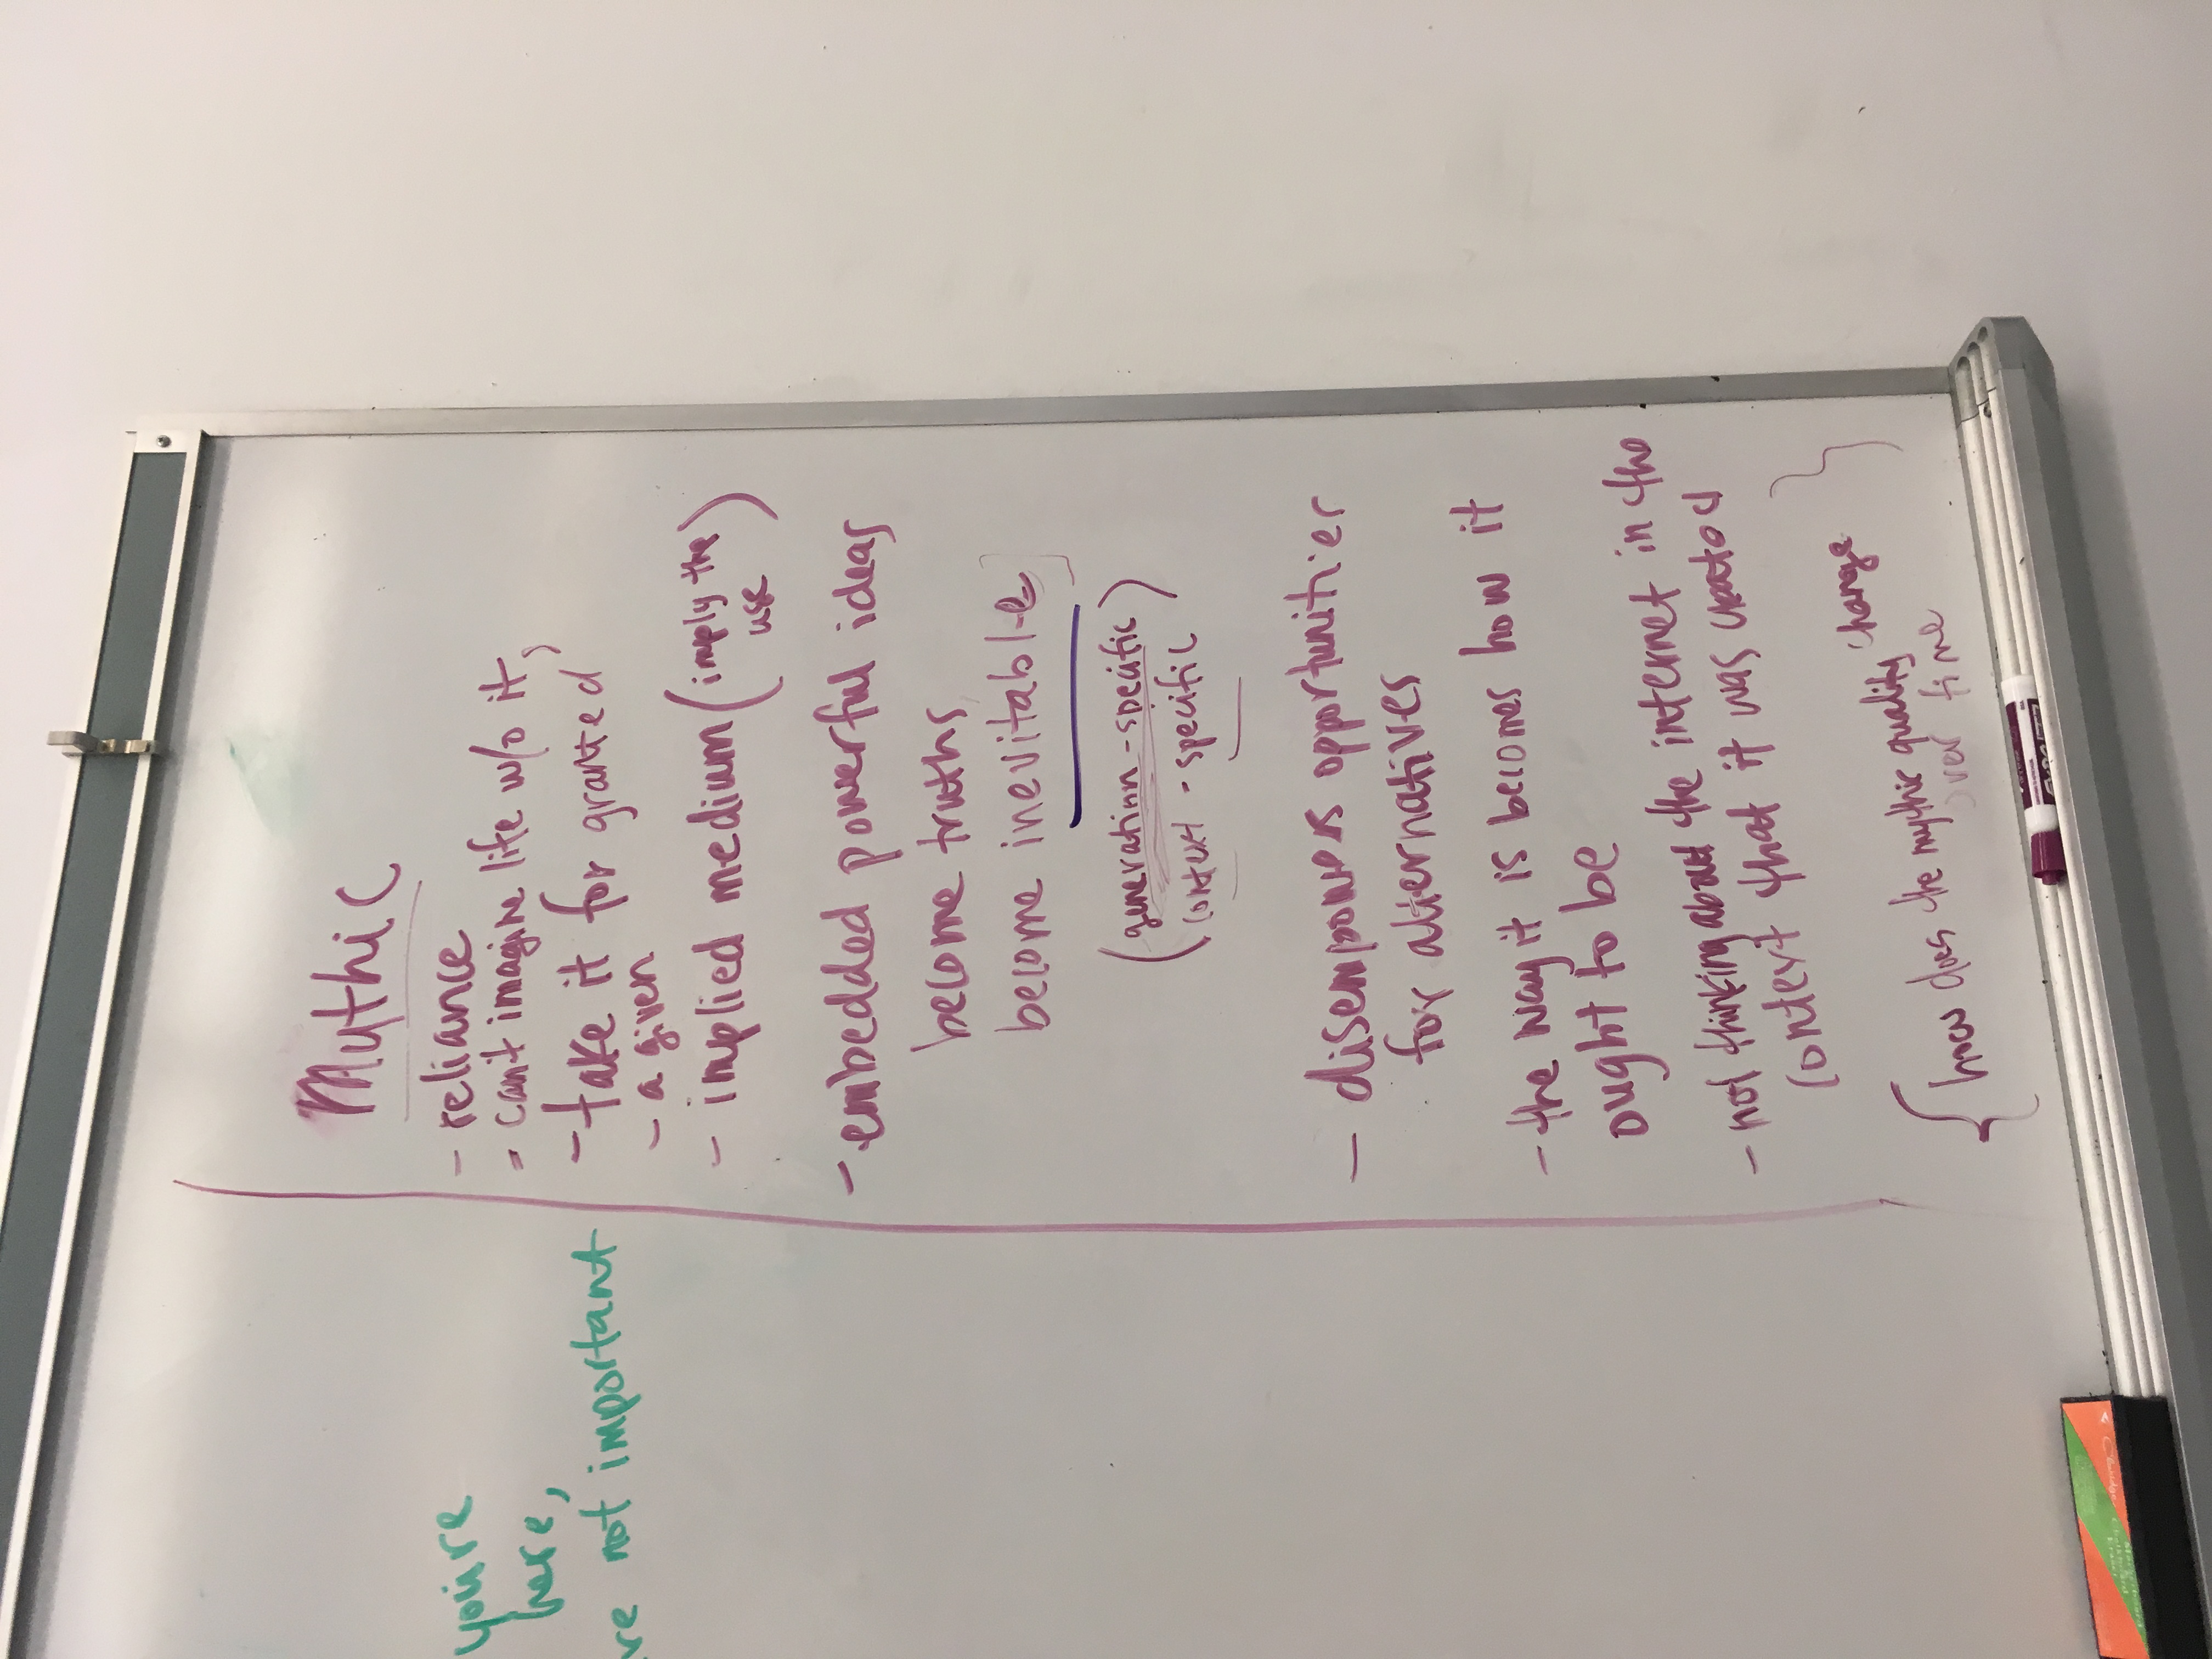 you're
here,
re not important
Mythic
- reliance
- can't imagine life w/o it,
- take it for granted
- a given
- implied medium (imply the
use)
- embedded powerful ideas
become truths
become inevitable]
(generation - specific
context - specific)
- disempowers opportunities
for alternatives
- the way it is becomes how it
ought to be
- not thinking about the internet in the
context that it was created
{how does the mythic quality change
over time}
EXPO